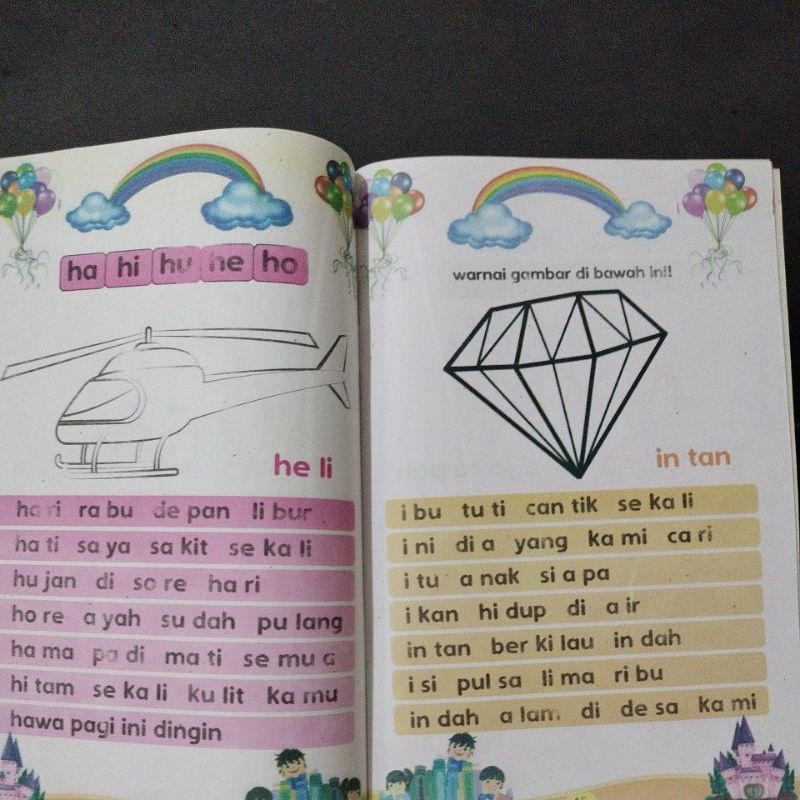 ha hi hu he ho
he li
ha ri ra bu de pan li bur
ha ti sa ya sa kit se ka li
hu jan di so re ha ri
ho re a yah su dah pu lang
ha ma pa di ma ti se mu a
hi tam se ka li ku lit ka mu
hawa pagi ini dingin
warnai gambar di bawah ini!
in tan
i bu tu ti can tik se ka li
i ni di a yang ka mi ca ri
i tu a nak si a pa
i kan hi dup di a ir
in tan ber ki lau in dah
i si pul sa li ma ri bu
in dah a lam di de sa ka mi